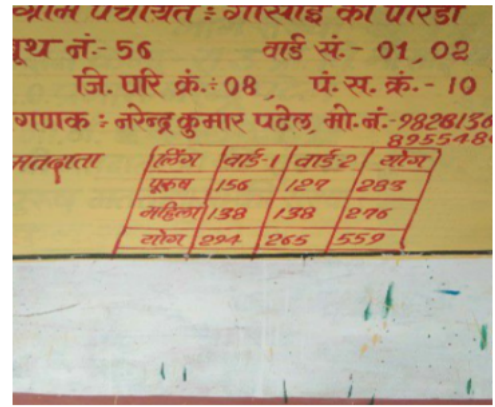 ग्राम पंचायत : गोसाई का पारडा
बूथ नं.- 56 वार्ड सं.- 01, 02
जि. परि क्रं. : 08, पं. स. क्रं. - 10
गणक : नरेन्द्र कुमार पटेल, मो. नं. -9826136
895548
मतदाता लिंग वार्ड-1 वार्ड-2 योग
पुरूष 156 127 283
महिला 138 138 276
योग 294 265 559